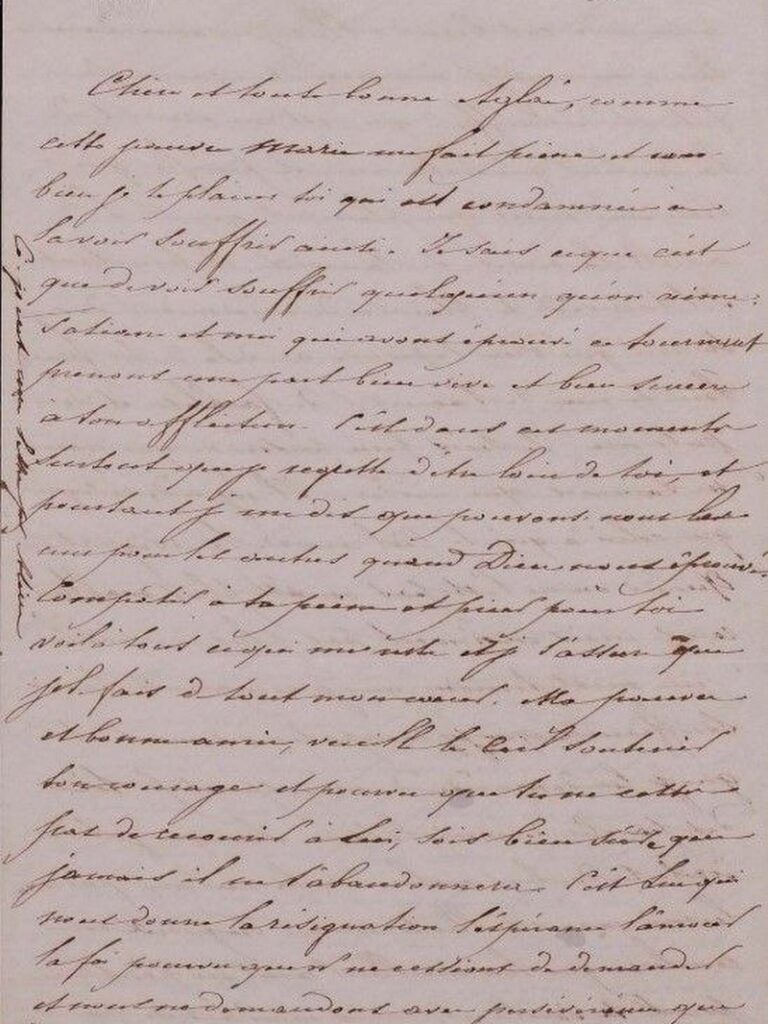 Chère et toute bonne Aglaé, comme
cette pauvre Marie me fait peine et com
bien je te plains toi qui est condamnée a
la voir souffrir ainsi. Je sais ce que c'est
que de voir souffrir quelqu'un qu'on aime.
Tatiana et moi qui avons éprouvé ce tourment
prenons une part bien vive et bien sincère
à ton affliction. C'est dans ces moments
surtout que je regrette d'être loin de toi, et
pourtant je me dis que pouvons-nous les
uns pour les autres quand Dieu nous éprouve.
Compatir à ta peine et prier pour toi
voilà tout ce qui me reste et je t'assure que
je le fais de tout mon cœur. Ma pauvre
et bonne amie, veuille le Ciel soutenir
ton courage et pourvu que tu ne cesse
pas de recourir à Lui, sois bien sûre que
jamais il ne t'abandonnera. C'est Lui qui
nous donne la résignation l'espérance l'amour
la foi pourvu que nous ne cessions de demander
et nous ne demandons avec persévérance que